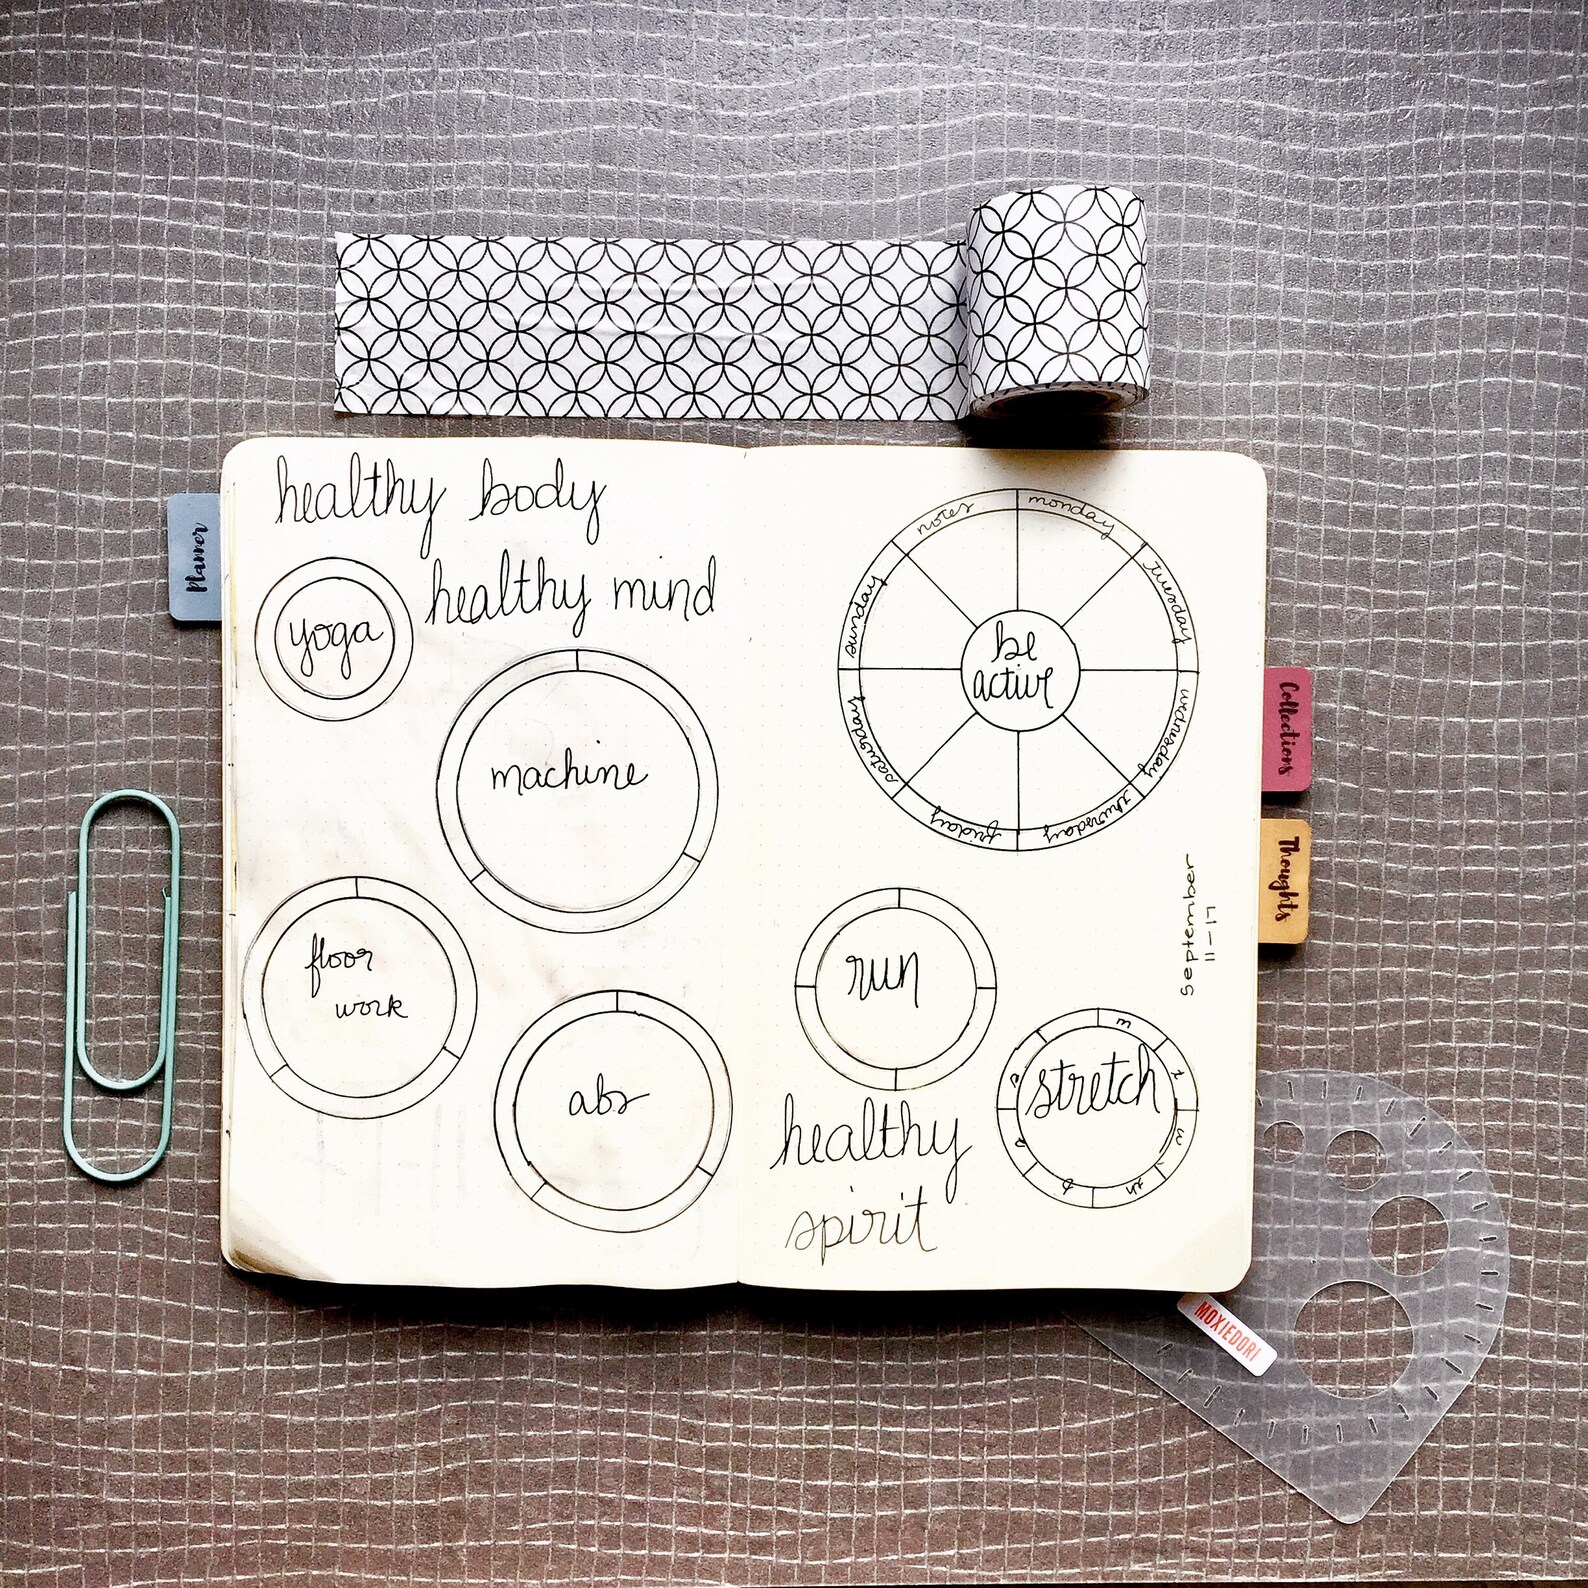 healthy body
healthy mind
yoga
machine
floor
work
abs
notes
monday
tuesday
wednesday
thursday
friday
saturday
sunday
be
active
september
11-17
run
stretch
m
t
w
th
f
s
s
healthy
spirit
Planner
Collections
Thoughts
MOXIEDORI